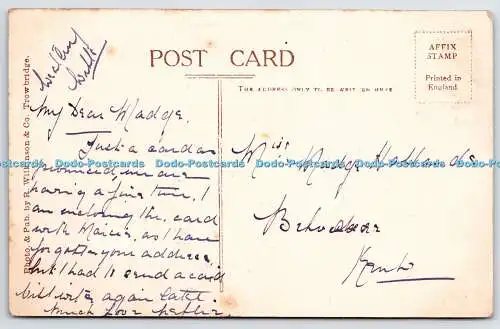 POST CARD
THE ADDRESS ONLY TO BE WRITTEN HERE
AFFIX
STAMP
Printed in
England.
Photo. & Pub. by R. Wilkinson & Co. Trowbridge.
My Dear Madge.
Just a card as
promised we are
having a fine time. I
am enclosing this card
with Maisie, as I have
forgotten your address,
but I had to send a card
will write again later.
Much love
Miss Madge
Belvedere
Kent
Dodo-Postcards Dodo-Postcards Dodo-Postcards Dodo-Postcards Dodo-Postcards